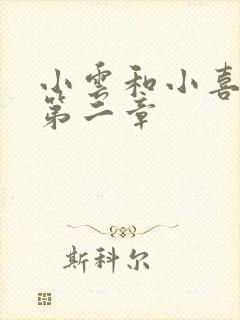 小雲和小喜
第二章
斯科尔